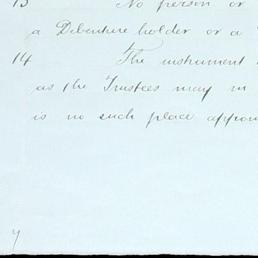 13 No person or
a Debenture holder or a
14 The instrument
as the Trustees may in
is no such place appoin